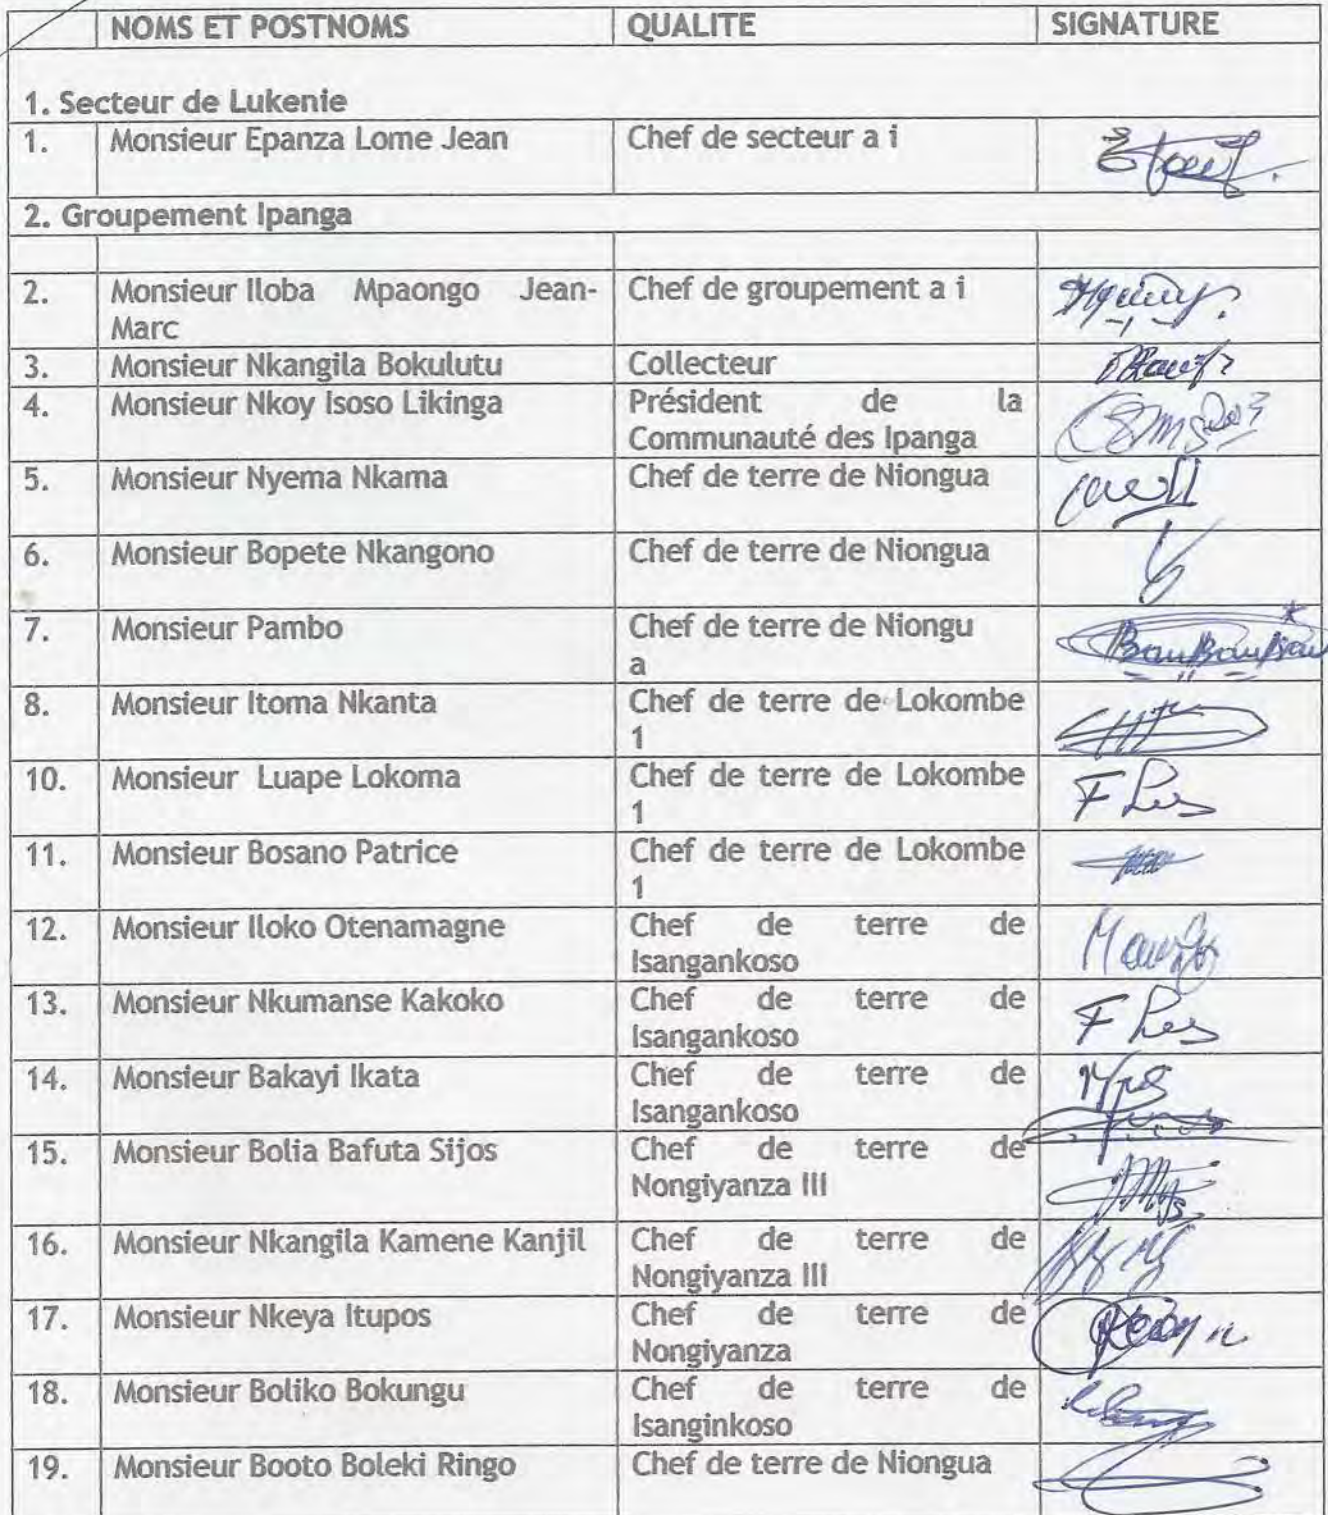 NOMS ET POSTNOMS QUALITE SIGNATURE
1. Secteur de Lukenie
1. Monsieur Epanza Lome Jean Chef de secteur a i
2. Groupement Ipanga
2. Monsieur Iloba Mpaongo Jean- Chef de groupement a i
Marc
3. Monsieur Nkangila Bokulutu Collecteur
4. Monsieur Nkoy Isoso Likinga Président de la
Communauté des Ipanga
5. Monsieur Nyema Nkama Chef de terre de Niongua
6. Monsieur Bopete Nkangono Chef de terre de Niongua
7. Monsieur Pambo Chef de terre de Niongu
a
8. Monsieur Itoma Nkanta Chef de terre de Lokombe
1
10. Monsieur Luape Lokoma Chef de terre de Lokombe
1
11. Monsieur Bosano Patrice Chef de terre de Lokombe
1
12. Monsieur Iloko Otenamagne Chef de terre de
Isangankoso
13. Monsieur Nkumanse Kakoko Chef de terre de
Isangankoso
14. Monsieur Bakayi Ikata Chef de terre de
Isangankoso
15. Monsieur Bolia Bafuta Sijos Chef de terre de
Nongiyanza III
16. Monsieur Nkangila Kamene Kanjil Chef de terre de
Nongiyanza III
17. Monsieur Nkeya Itupos Chef de terre de
Nongiyanza
18. Monsieur Boliko Bokungu Chef de terre de
Isanginkoso
19. Monsieur Booto Boleki Ringo Chef de terre de Niongua